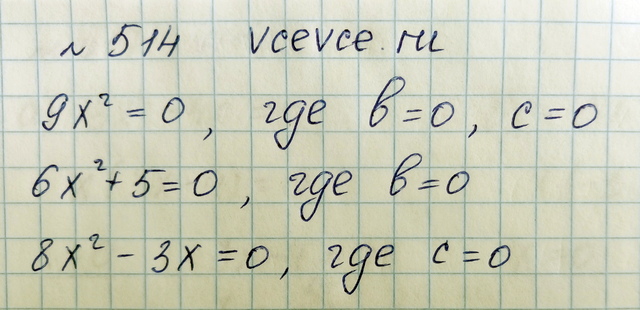 № 514 vcevce.ru
9x² = 0, где в=0, с=0
6x²+5=0, где в=0
8x² - 3x = 0, где с=0